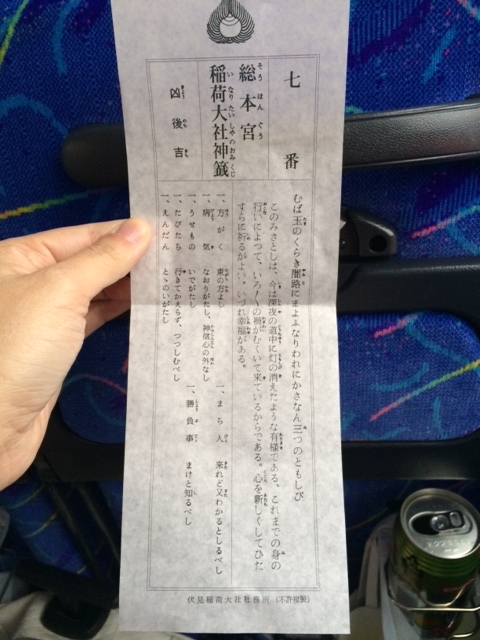 七番
総本宮
稲荷大社神籤
凶後吉
むば玉のくらき闇路にまよふなりわれにかさなん三つのともしび
このみさとしは、今は深夜の道中に灯の消えたような有様である、これまでの身の
行いによつて、いろ〱の禍がむくいて来ているからである。心を新しくしてひた
すらに祈るがよい。いづれ幸福がある。
一、方がく 東の方よし
一、病気 なおりがたし、神信心の外なし
一、うせもの いでがたし
一、たびだち 行きてかえらず、つつしむべし
一、えんだん とゝのいがたし
一、まち人 来れど又わかるとしるべし
一、勝負事 まけと知るべし
伏見稲荷大社社務所 (不許複製)